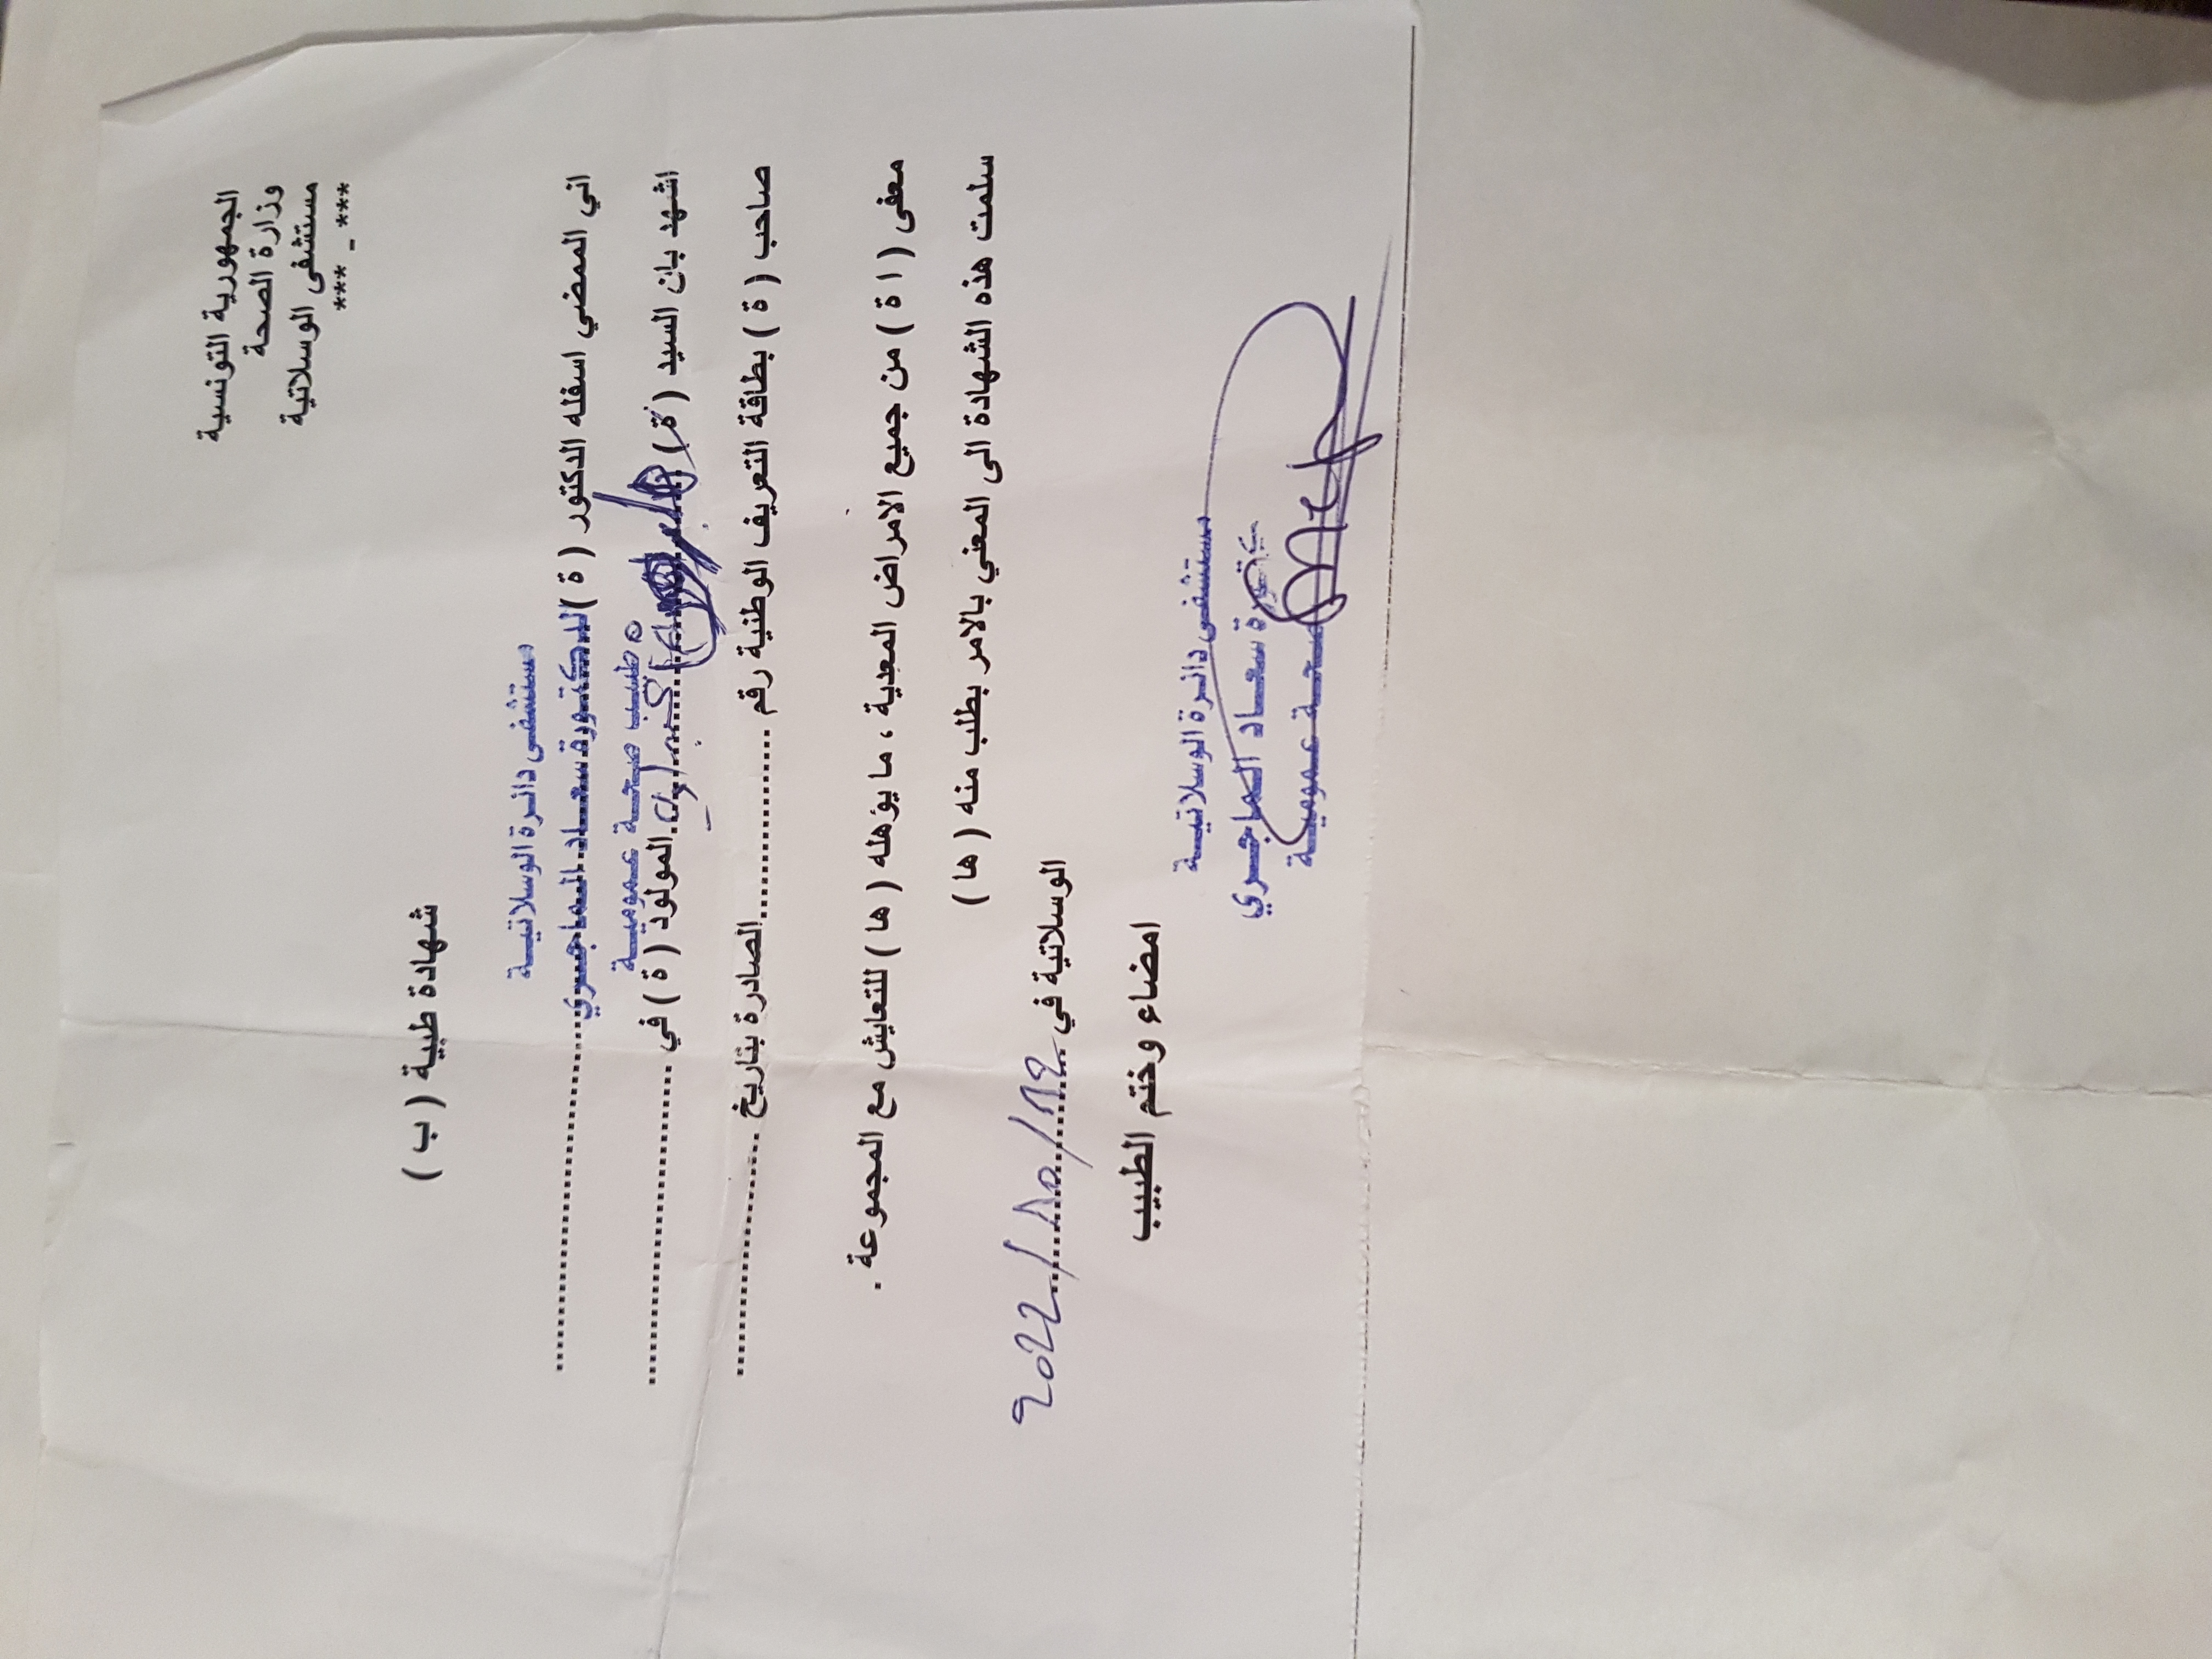 الجمهورية التونسية
وزارة الصحة
مستشفى الوسلاتية
*** _ ***
شهادة طبية ( ب )
مستشفى دائرة الوسلاتية
اني الممضي اسفله الدكتور ( ة ) الدكتورة سعاد الماجري
طبيب صحة عمومية
اشهد بان السيد ( ة ) المولود ( ة ) في
صاحب ( ة ) بطاقة التعريف الوطنية رقم الصادرة بتاريخ
معفى ( ا ة ) من جميع الامراض المعدية ، ما يؤهله ( ها ) للتعايش مع المجموعة .
سلمت هذه الشهادة الى المعني بالامر بطلب منه ( ها )
الوسلاتية في 2022/10/12
امضاء وختم الطبيب
مستشفى دائرة الوسلاتية
سعاد الماجري
صحة عمومية